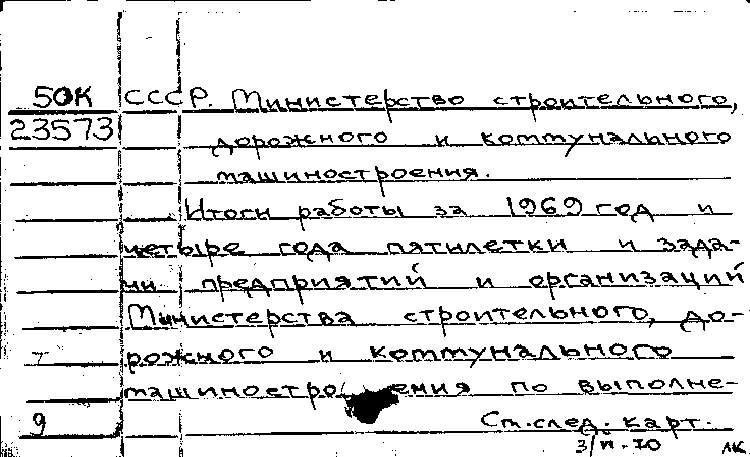 50К СССР. Министерство строительного,
23573 дорожного и коммунального
машиностроения.
Итоги работы за 1969 год и
четыре года пятилетки и зада-
чи предприятий и организаций
Министерства строительного, до-
рожного и коммунального
машиностроения по выполне-
9 См. след. карт.
3/VI-70 ЛК